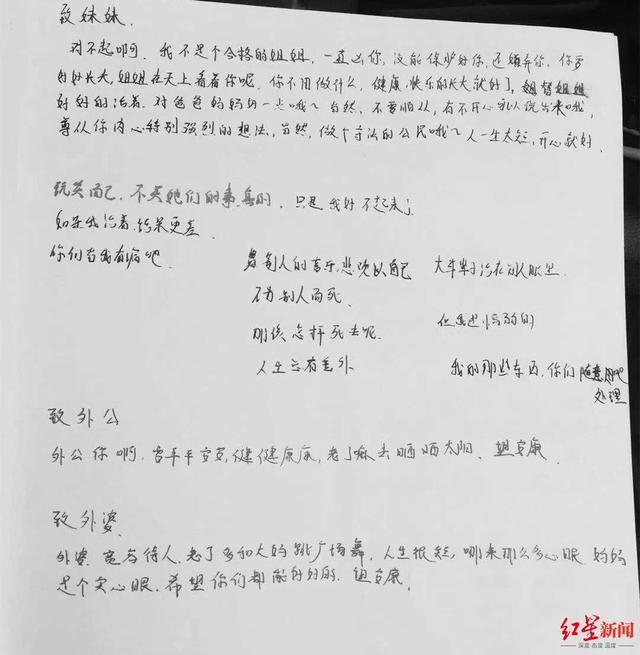 致妹妹.
对不起啊. 我不是个合格的姐姐, 一直凶你, 没能保护好你, 还嫌弃你. 你要
好好长大, 姐姐在天上看着你呢. 你不用做什么, 健康、快乐的长大就好了,
好好的活着. 对爸爸妈妈好一点哦~ 当然, 不要顺从, 有不开心就说出来哦,
尊从你内心特别强烈的想法, 当然, 做个守法的公民哦~ 人一生太短, 开心就好.
玩笑而已, 不关她们的事, 真的. 只是我好不起来了
如果我活着, 结果更差
你们当我有病吧.
别人的喜乐, 悲欢以自己
大半辈子活在别人眼里.
不为别人而死.
但
明天怎样死去呢.
人生云有意外
我的那些东西, 你们随意用吧
处理
致外公
外公你啊, 要平平安安, 健健康康, 老了嘛去晒晒太阳. 安康.
致外婆.
外婆, 宽容待人, 老了多和大妈跳广场舞. 人生很短, 哪来那么多心眼. 妈妈
是个实心眼. 希望你们都能好好的. 安康.
红星新闻
深度 态度 温度